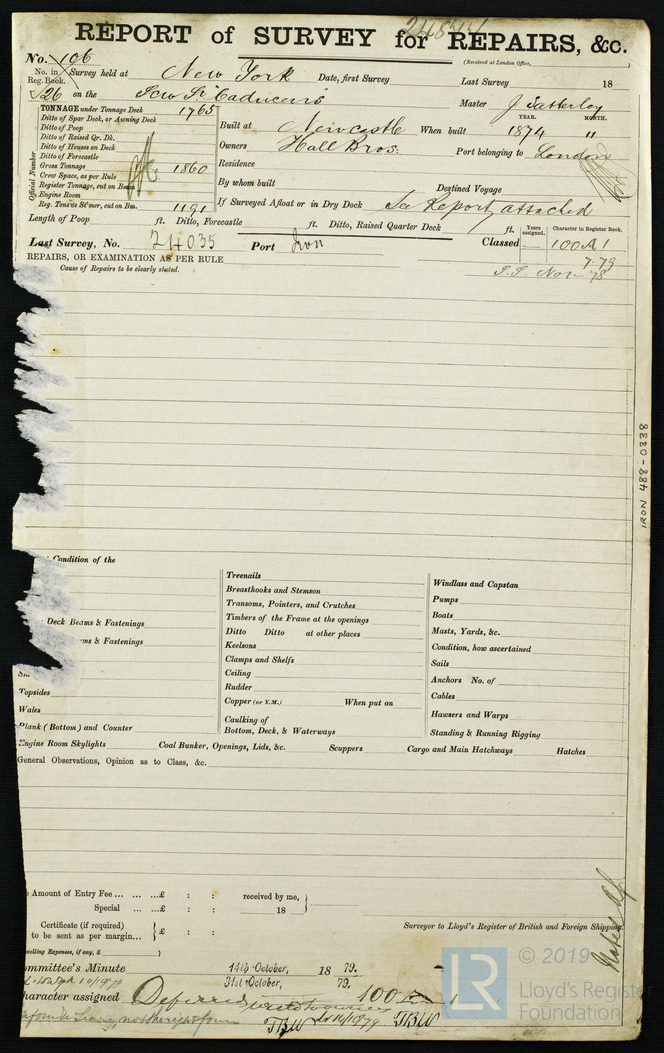 REPORT of SURVEY for REPAIRS, &c.
(Received at London Office,
No. 106
No. in Survey held at New York Date, first Survey Last Survey 18
Reg. Book.
526 on the Caduceus Master J Satterley
TONNAGE under Tonnage Deck 1765
Ditto of Spar Deck, or Awning Deck
Ditto of Poop
Ditto of Raised Qr. Dk.
Ditto of Houses on Deck
Ditto of Forecastle
Gross Tonnage 1860
Crew Space, as per Rule
Register Tonnage, cut on Beam
Engine Room
Reg. Tons in St'mer, cut on Bm. 1191
Official Number
YEAR. MONTH.
Built at Newcastle When built 1874 "
Owners Hall Bros. Port belonging to London
Residence
By whom built Destined Voyage
If Surveyed Afloat or in Dry Dock See Report attached
Length of Poop ft. Ditto, Forecastle ft. Ditto, Raised Quarter Deck ft.
Years assigned. Character in Register Book.
Last Survey, No. 24035 Port Iron Classed 100A1
7.79
S.S. Nov 78
REPAIRS, OR EXAMINATION AS PER RULE
Cause of Repairs to be clearly stated.
IRON 488-0338
Condition of the
Deck Beams & Fastenings
ms & Fastenings
Topsides
Wales
Plank (Bottom) and Counter
Treenails
Breasthooks and Stemson
Transoms, Pointers, and Crutches
Timbers of the Frame at the openings
Ditto Ditto at other places
Keelsons
Clamps and Shelfs
Ceiling
Rudder
Copper (or Y.M.) When put on
Caulking of
Bottom, Deck, & Waterways
Windlass and Capstan
Pumps
Boats
Masts, Yards, &c.
Condition, how ascertained
Sails
Anchors No. of
Cables
Hawsers and Warps
Standing & Running Rigging
Engine Room Skylights Coal Bunker, Openings, Lids, &c. Scuppers Cargo and Main Hatchways Hatches
General Observations, Opinion as to Class, &c.
Amount of Entry Fee ... ... ...£ : : received by me,
Special ... ...£ : : 18
Certificate (if required)
to be sent as per margin... £ : :
velling Expenses, if any, £ )
Surveyor to Lloyd's Register of British and Foreign Shipping.
ommittee's Minute 14th October, 18 79.
31st October, 79.
haracter assigned Deferred 100 1
TBW TBW
© 2019
LR
Lloyd's Register
Foundation